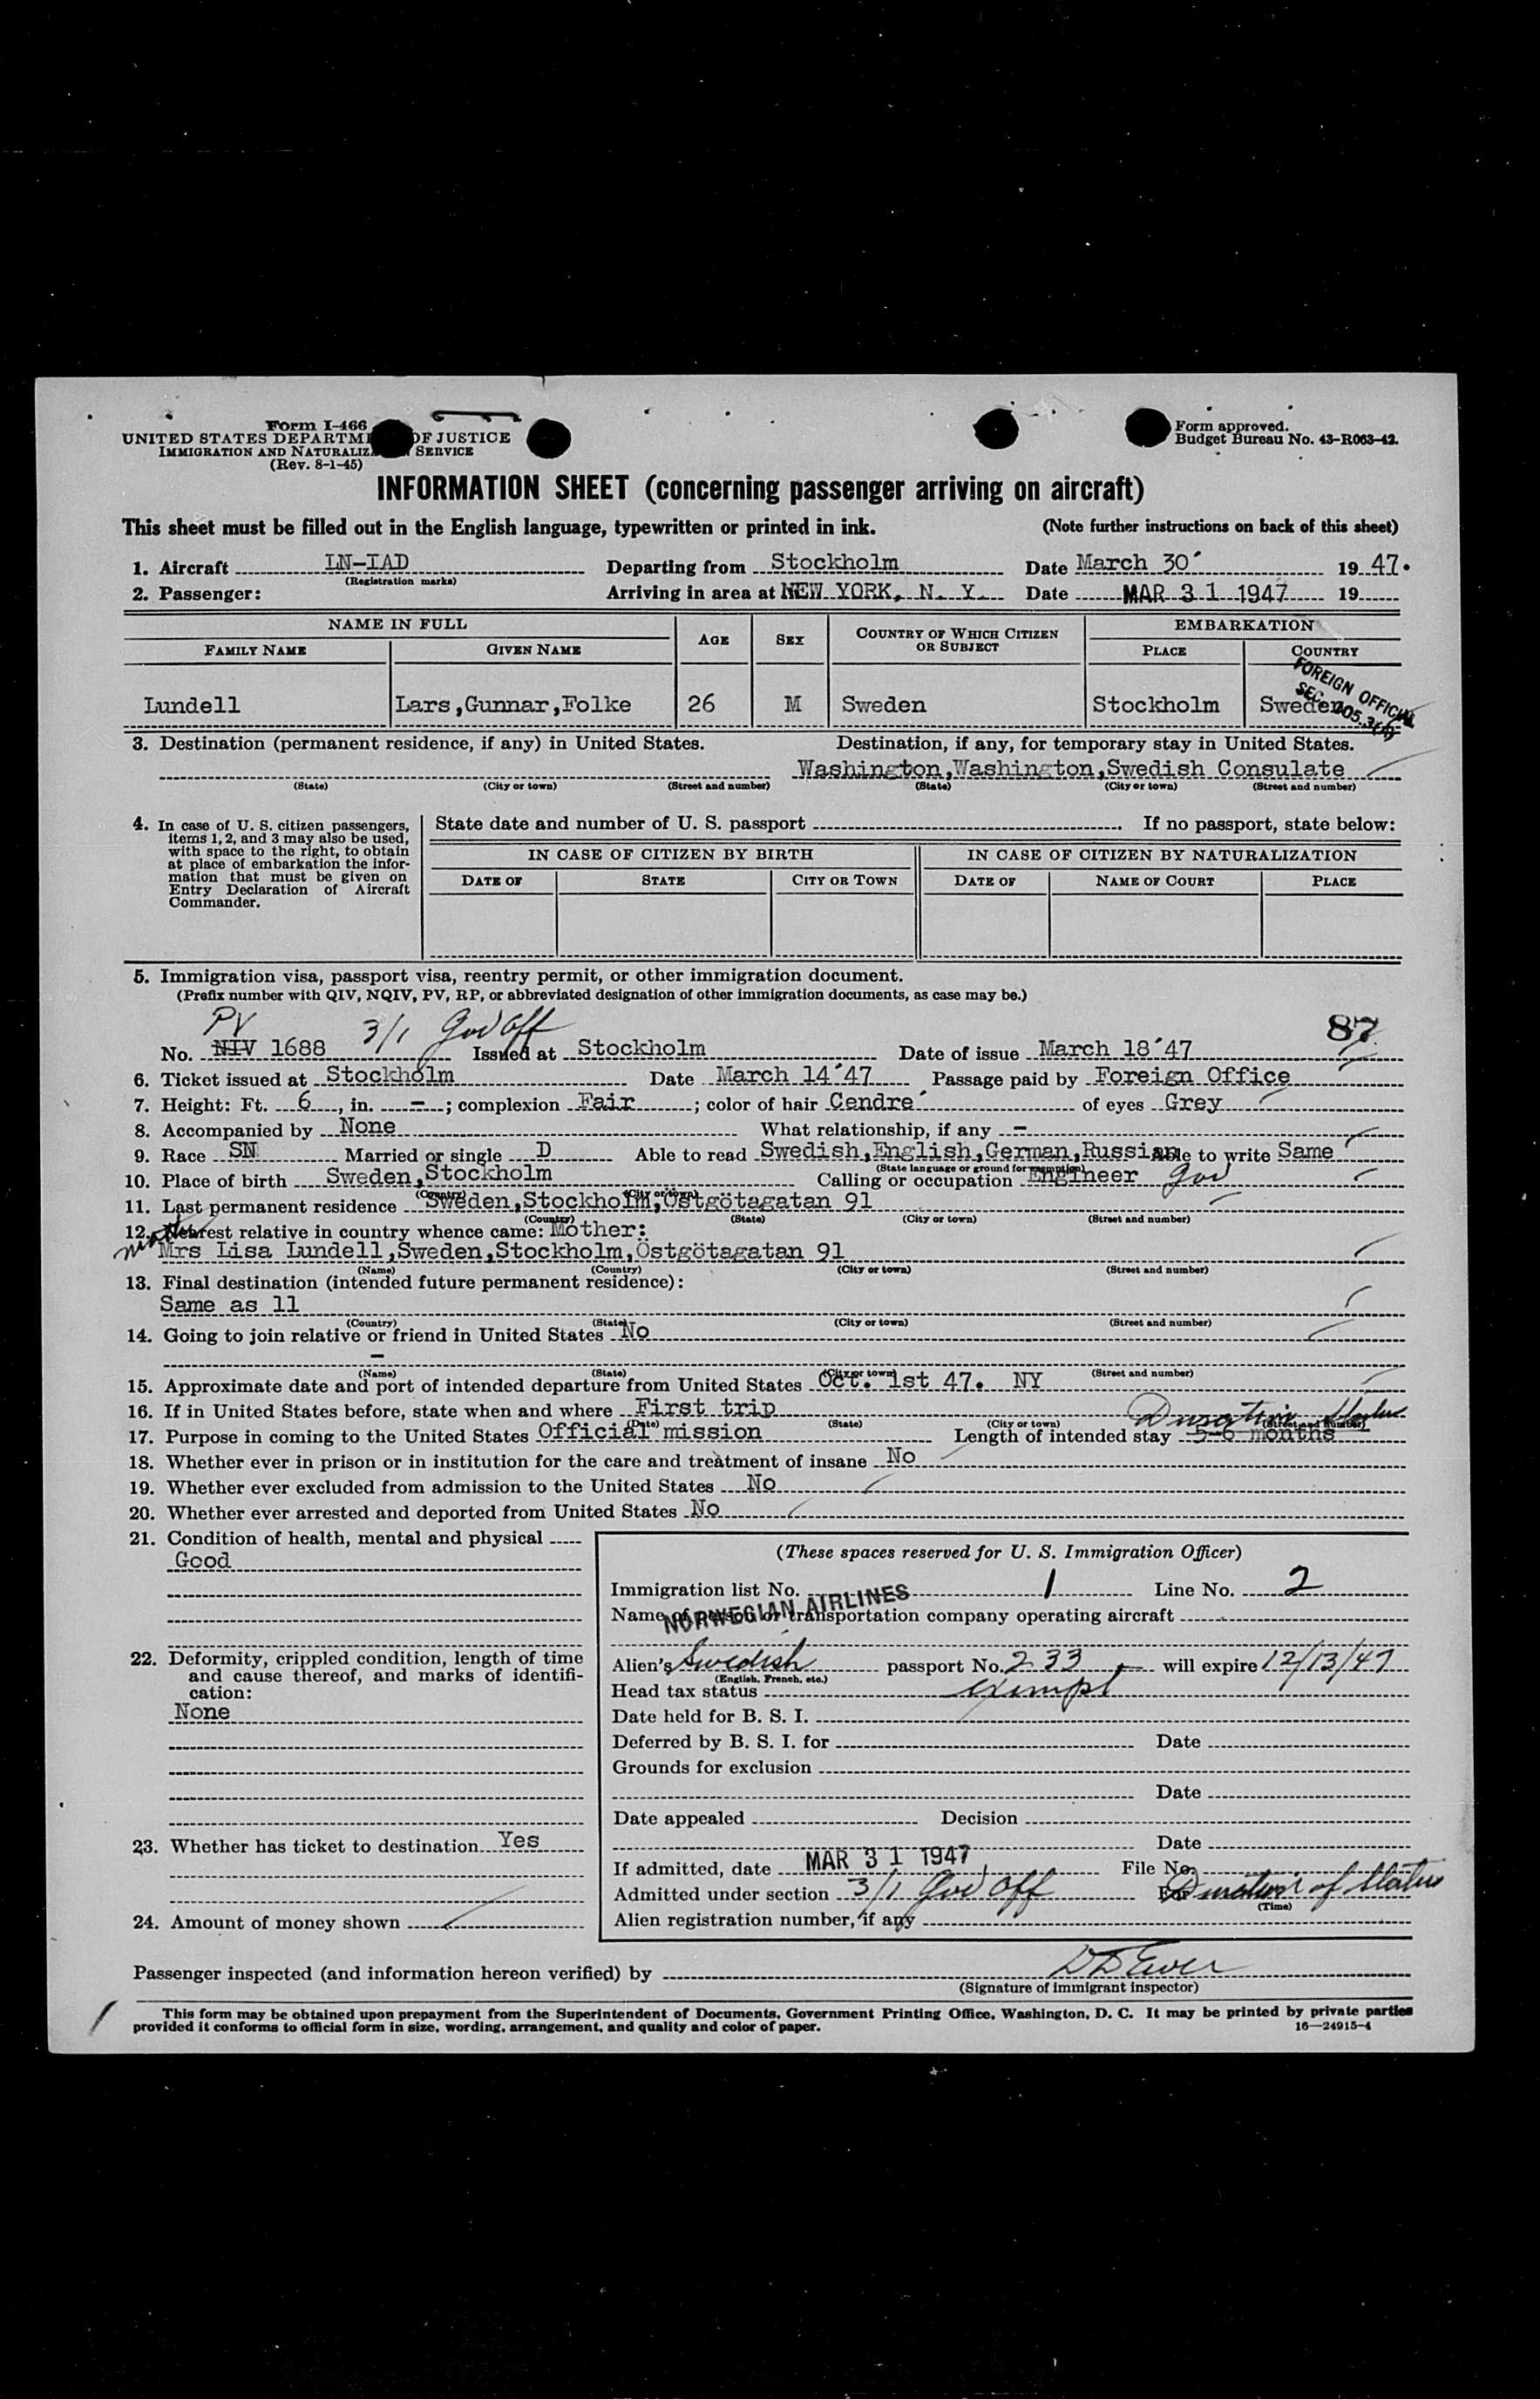 Form I-466
UNITED STATES DEPARTM OF JUSTICE
IMMIGRATION AND NATURALIZ SERVICE
(Rev. 8-1-45)
Form approved.
Budget Bureau No. 43-R063-42.
INFORMATION SHEET (concerning passenger arriving on aircraft)
This sheet must be filled out in the English language, typewritten or printed in ink. (Note further instructions on back of this sheet)
1. Aircraft LN-IAD Departing from Stockholm Date March 30' 19 47.
(Registration marks)
2. Passenger: Arriving in area at NEW YORK, N. Y. Date MAR 31 1947 19
NAME IN FULL AGE SEX COUNTRY OF WHICH CITIZEN OR SUBJECT EMBARKATION
FAMILY NAME GIVEN NAME PLACE COUNTRY
FOREIGN OFFICIAL
SEC.
Lundell Lars,Gunnar,Folke 26 M Sweden Stockholm Sweden
3. Destination (permanent residence, if any) in United States. Destination, if any, for temporary stay in United States.
Washington,Washington,Swedish Consulate
(State) (City or town) (Street and number) (State) (City or town) (Street and number)
4. In case of U. S. citizen passengers,
items 1, 2, and 3 may also be used,
with space to the right, to obtain
at place of embarkation the infor-
mation that must be given on
Entry Declaration of Aircraft
Commander.
State date and number of U. S. passport If no passport, state below:
IN CASE OF CITIZEN BY BIRTH IN CASE OF CITIZEN BY NATURALIZATION
DATE OF STATE CITY OR TOWN DATE OF NAME OF COURT PLACE
5. Immigration visa, passport visa, reentry permit, or other immigration document.
(Prefix number with QIV, NQIV, PV, RP, or abbreviated designation of other immigration documents, as case may be.)
PV 3/1 Gov Off 87
No. NIV 1688 Issued at Stockholm Date of issue March 18'47
6. Ticket issued at Stockholm Date March 14'47 Passage paid by Foreign Office
7. Height: Ft. 6, in. -; complexion Fair; color of hair Cendré of eyes Grey
8. Accompanied by None What relationship, if any -
9. Race SN Married or single D Able to read Swedish,English,German,Russian Able to write Same
(State language or ground for exemption)
10. Place of birth Sweden,Stockholm Calling or occupation Engineer Gov
(Country) (City or town)
11. Last permanent residence Sweden,Stockholm,Östgötagatan 91
(Country) (State) (City or town) (Street and number)
12. Nearest relative in country whence came: Mother:
Mrs Lisa Lundell,Sweden,Stockholm,Östgötagatan 91
(Name) (Country) (City or town) (Street and number)
13. Final destination (intended future permanent residence):
Same as 11
(Country) (State) (City or town) (Street and number)
14. Going to join relative or friend in United States No
-
(Name) (State) (City or town) (Street and number)
15. Approximate date and port of intended departure from United States Oct. 1st 47. NY
16. If in United States before, state when and where First trip
(Date) (State) (City or town) (Street and number)
Duration Status
17. Purpose in coming to the United States Official mission Length of intended stay 5-6 months
18. Whether ever in prison or in institution for the care and treatment of insane No
19. Whether ever excluded from admission to the United States No
20. Whether ever arrested and deported from United States No
21. Condition of health, mental and physical
Good
22. Deformity, crippled condition, length of time
and cause thereof, and marks of identifi-
cation:
None
23. Whether has ticket to destination Yes
24. Amount of money shown
(These spaces reserved for U. S. Immigration Officer)
Immigration list No. 1 Line No. 2
NORWEGIAN AIRLINES
Name of person or transportation company operating aircraft
Alien's Swedish passport No. 233 will expire 12/13/47
(English, French, etc.)
Head tax status exempt
Date held for B. S. I.
Deferred by B. S. I. for Date
Grounds for exclusion
Date
Date appealed Decision
Date
If admitted, date MAR 31 1947 File No.
Admitted under section 3/1 Gov Off For Duration of Status
(Time)
Alien registration number, if any
Passenger inspected (and information hereon verified) by
(Signature of immigrant inspector)
This form may be obtained upon prepayment from the Superintendent of Documents, Government Printing Office, Washington, D. C. It may be printed by private parties
provided it conforms to official form in size, wording, arrangement, and quality and color of paper. 16—24915-4